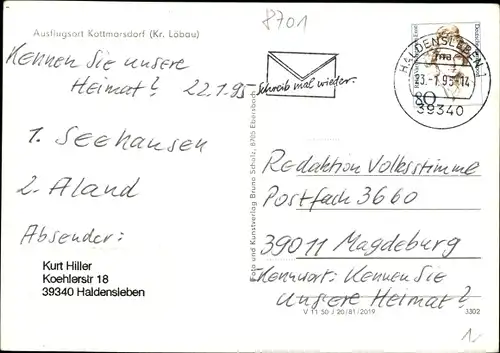 8701
Ausflugsort Kottmarsdorf (Kr. Löbau)
Kennen Sie unsere
Heimat? 22.1.95
Schreib mal wieder.
HALDENSLEBEN
39340
80
1. Seehausen
2. Aland
Absender:
Kurt Hiller
Koehlerstr 18
39340 Haldensleben
Foto und Kunstverlag Bruno Scholz, 8705 Ebersbach
Redaktion Volksstimme
Postfach 3660
39011 Magdeburg
Kennwort: Kennen Sie
unsere Heimat?
V 11 50 J 20/81/2019 3302